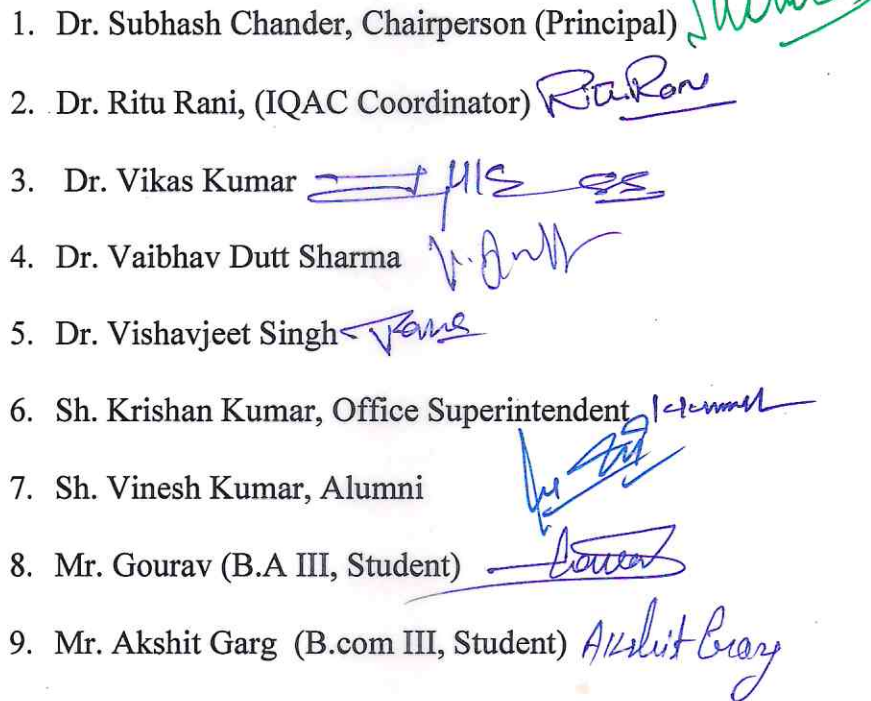 1. Dr. Subhash Chander, Chairperson (Principal)
2. Dr. Ritu Rani, (IQAC Coordinator) Ritu Rani
3. Dr. Vikas Kumar
4. Dr. Vaibhav Dutt Sharma
5. Dr. Vishavjeet Singh
6. Sh. Krishan Kumar, Office Superintendent
7. Sh. Vinesh Kumar, Alumni
8. Mr. Gourav (B.A III, Student) Gourav
9. Mr. Akshit Garg (B.com III, Student) Akshit Garg